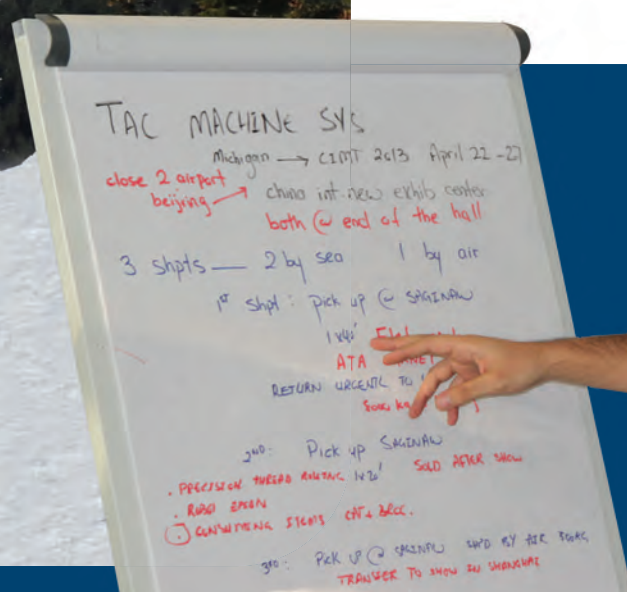 TAC MACHINE SYS
Michigan → CIMT 2013 April 22-27
close 2 airport
beijing → china int. new exhib center
both @ end of the hall
3 shpts — 2 by sea 1 by air
1st shpt: pick up @ SAGINAW
1x40'
ATA
RETURN URGENTLY TO
2ND: Pick up SAGINAW
. PRECISION THREAD ROLLING 1x20' SOLD AFTER SHOW
. ROBO
. ITEMS
3RD: PICK UP @ SAGINAW SHPD BY AIR 300KG
TRANSFER TO SHOW IN SHANGHAI